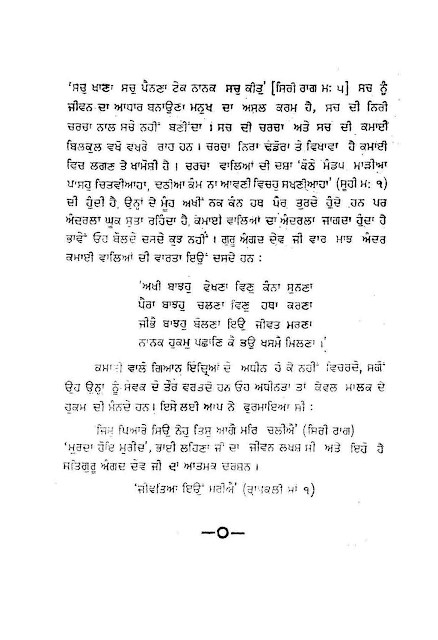 'ਸਚੁ ਖਾਣਾ ਸਚੁ ਪੈਨਣਾ ਟੇਕ ਨਾਨਕ ਸਚੁ ਕੀਤੁ' [ਸਿਰੀ ਰਾਗ ਮ: ੫] ਸਚ ਨੂੰ
ਜੀਵਨ ਦਾ ਆਧਾਰ ਬਨਾਉਣਾ ਮਨੁਖ ਦਾ ਅਸਲ ਕਰਮ ਹੈ, ਸਚ ਦੀ ਨਿਰੀ
ਚਰਚਾ ਨਾਲ ਸਚੇ ਨਹੀਂ ਬਣੀਦਾ। ਸਚ ਦੀ ਚਰਚਾ ਅਤੇ ਸਚ ਦੀ ਕਮਾਈ
ਬਿਲਕੁਲ ਵਖੋ ਵਖਰੇ ਰਾਹ ਹਨ। ਚਰਚਾ ਨਿਰਾ ਢੰਡੋਰਾ ਤੇ ਵਿਖਾਵਾ ਹੈ ਕਮਾਈ
ਵਿਚ ਲਗਣ ਤੇ ਖਾਮੋਸ਼ੀ ਹੈ। ਚਰਚਾ ਵਾਲਿਆਂ ਦੀ ਦਸ਼ਾ 'ਕੋਠੇ ਮੰਡਪ ਮਾੜੀਆ
ਪਾਸਹੁ ਚਿਤਵੀਆਹਾ, ਦਠੀਆ ਕੰਮ ਨਾ ਆਵਨੀ ਵਿਚਹੁ ਸਖਣੀਆਹਾ' (ਸੂਹੀ ਮ: ੧)
ਦੀ ਹੁੰਦੀ ਹੈ, ਉਨ੍ਹਾਂ ਦੇ ਮੂੰਹ ਅਖੀਂ ਨਕ ਕੰਨ ਹਥ ਪੈਰ ਤੁਰਦੇ ਹੁੰਦੇ ਹਨ ਪਰ
ਅੰਦਰਲਾ ਘੂਕ ਸੁਤਾ ਰਹਿੰਦਾ ਹੈ, ਕਮਾਈ ਵਾਲਿਆਂ ਦਾ ਅੰਦਰਲਾ ਜਾਗਦਾ ਹੁੰਦਾ ਹੈ
ਭਾਵੇਂ ਓਹ ਬੋਲਦੇ ਦਸਦੇ ਕੁਝ ਨਹੀਂ। ਗੁਰੂ ਅੰਗਦ ਦੇਵ ਜੀ ਵਾਰ ਮਾਝ ਅੰਦਰ
ਕਮਾਈ ਵਾਲਿਆਂ ਦੀ ਵਾਰਤਾ ਇਉਂ ਦਸਦੇ ਹਨ :
'ਅਖੀ ਬਾਝਹੁ ਵੇਖਣਾ ਵਿਣੁ ਕੰਨਾ ਸੁਨਣਾ
ਪੈਰਾ ਬਾਝਹੁ ਚਲਣਾ ਵਿਣੁ ਹਥਾ ਕਰਣਾ
ਜੀਭੈ ਬਾਝਹੁ ਬੋਲਣਾ ਇਉ ਜੀਵਤ ਮਰਣਾ
ਨਾਨਕ ਹੁਕਮੁ ਪਛਾਣਿ ਕੈ ਤਉ ਖਸਮੈ ਮਿਲਣਾ।'
ਕਮਾਈ ਵਾਲੇ ਗਿਆਨ ਇੰਦ੍ਰਿਆਂ ਦੇ ਅਧੀਨ ਹੋ ਕੇ ਨਹੀਂ ਵਿਚਰਦੇ, ਸਗੋਂ
ਉਹ ਉਨ੍ਹਾਂ ਨੂੰ ਸੇਵਕ ਦੇ ਤੌਰ ਵਰਤਦੇ ਹਨ ਓਹ ਅਧੀਨਤਾ ਤਾਂ ਕੇਵਲ ਮਾਲਕ ਦੇ
ਹੁਕਮ ਦੀ ਮੰਨਦੇ ਹਨ। ਇਸੇ ਲਈ ਆਪ ਨੇ ਫੁਰਮਾਇਆ ਸੀ :
ਜਿਸੁ ਪਿਆਰੇ ਸਿਉ ਨੇਹੁ ਤਿਸੁ ਆਗੈ ਮਰਿ ਚਲੀਐ' (ਸਿਰੀ ਰਾਗ)
'ਮੁਰਦਾ ਹੋਇ ਮੁਰੀਦ', ਭਾਈ ਲਹਿਣਾ ਜੀ ਦਾ ਜੀਵਨ ਲਖਸ਼ ਸੀ ਅਤੇ ਇਹੋ ਹੈ
ਸਤਿਗੁਰੂ ਅੰਗਦ ਦੇਵ ਜੀ ਦਾ ਆਤਮਕ ਦਰਸ਼ਨ।
'ਜੀਵਤਿਆ ਇਉਂ ਮਰੀਐ' (ਰਾਮਕਲੀ ਮਾਂ ੧)